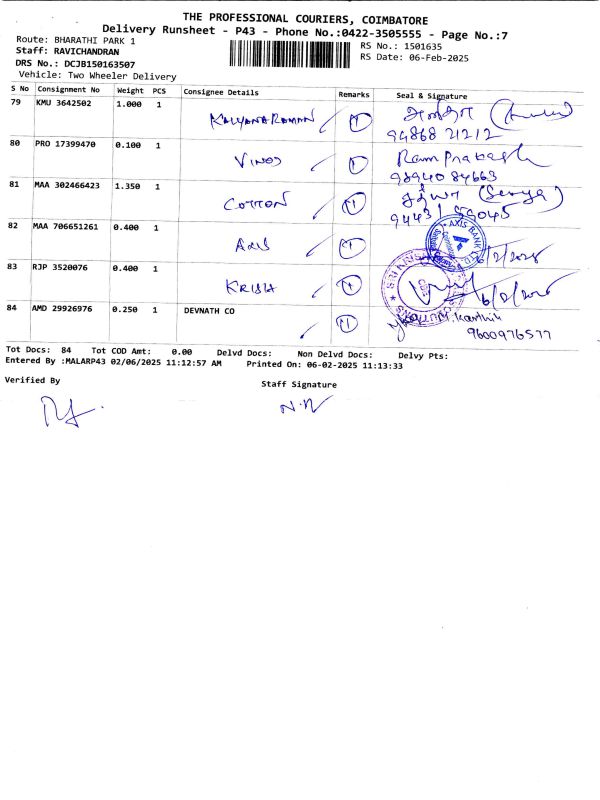 THE PROFESSIONAL COURIERS, COIMBATORE
Delivery Runsheet - P43 - Phone No.:0422-3505555 - Page No.:7
Route: BHARATHI PARK 1
RS No.: 1501635
Staff: RAVICHANDRAN
RS Date: 06-Feb-2025
DRS No.: DCJB150163507
Vehicle: Two Wheeler Delivery
S No Consignment No Weight PCS Consignee Details Remarks Seal & Signature
79 KMU 3642502 1.000 1 KALYANA RAMAN
94868 21212
80 PRO 17399470 0.100 1 VINOJ Ram Prakash
98940 84663
81 MAA 302466423 1.350 1 COTTON
94431 59045
82 MAA 706651261 0.400 1 AXIS AXIS BANK LTD
83 RJP 3520076 0.400 1 KRISH SRI KRISH
6/2/2025
84 AMD 29926976 0.250 1 DEVNATH CO Karthik
9600976577
Tot Docs: 84 Tot COD Amt: 0.00 Delvd Docs: Non Delvd Docs: Delvy Pts:
Entered By :MALARP43 02/06/2025 11:12:57 AM Printed On: 06-02-2025 11:13:33
Verified By Staff Signature